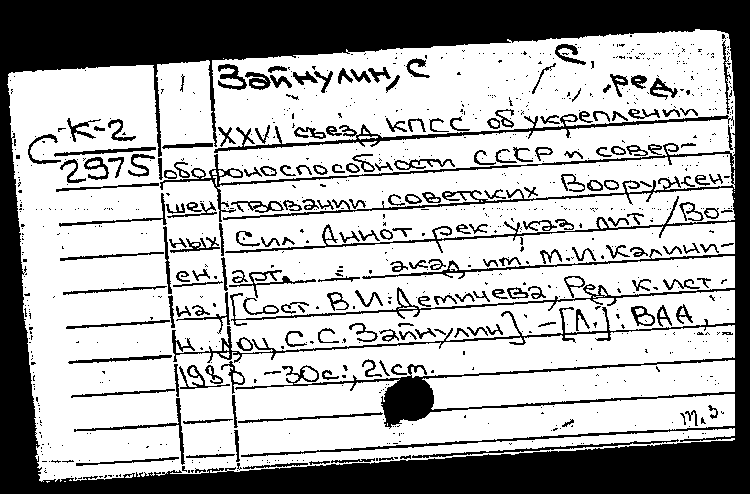 Зайнулин, С. С.,
ред.
С К-2
2975
XXVI съезд КПСС об укреплении
обороноспособности СССР и совер-
шенствовании советских Вооружен-
ных Сил: Аннот. рек. указ. лит. / Во-
ен. арт. акад. им. М.И. Калини-
на; [Сост. В.И. Демичева; Ред. к. ист.
н., доц. С.С. Зайнулин]. - [Л.]: ВАА,
1983. - 30с.; 21см.